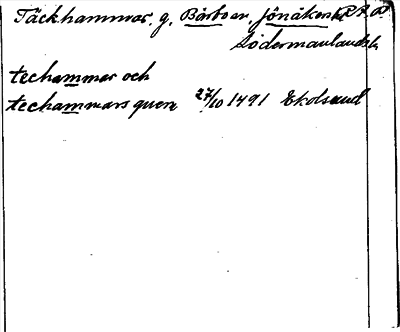 Täckhammar, g. Bärbo sn, Jönåkers hd R.A.P.
Södermanlands l.
techammar och
techammars quern 27/10 1491 Ekolsund